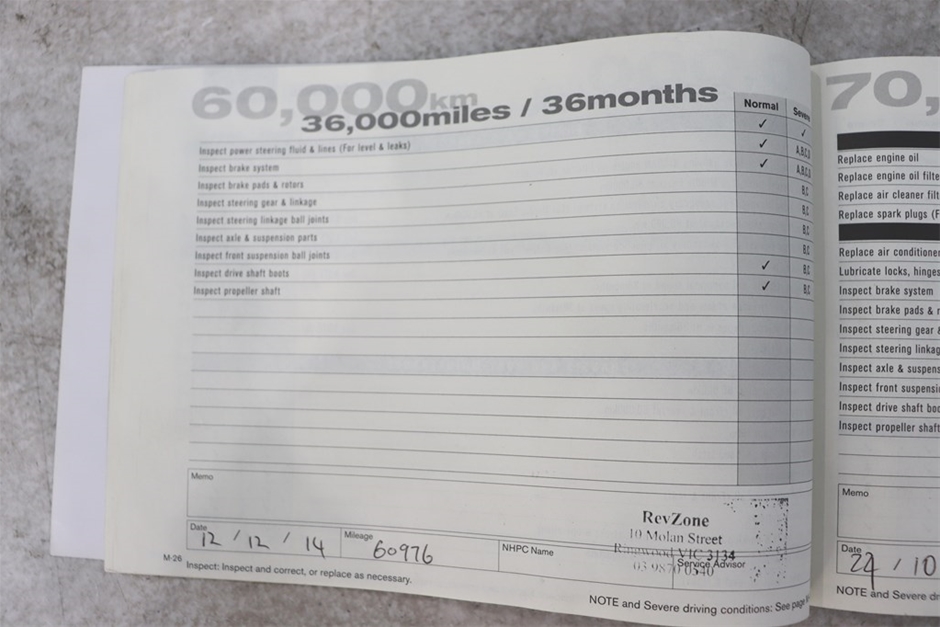 60,000km
36,000miles / 36months
Normal Severe
✓ ✓
Inspect power steering fluid & lines (For level & leaks) ✓ A,B,C,D
Inspect brake system ✓ A,B,C,D
Inspect brake pads & rotors B,C
Inspect steering gear & linkage B,C
Inspect steering linkage ball joints B,C
Inspect axle & suspension parts B,C
Inspect front suspension ball joints
Inspect drive shaft boots ✓ B,C
Inspect propeller shaft ✓ B,C
Memo
RevZone
10 Molan Street
Ringwood VIC 3134
03 9870 0540
Date 12 / 12 / 14
Mileage 60976
NHPC Name
Service Advisor
M-26
Inspect: Inspect and correct, or replace as necessary.
NOTE and Severe driving conditions: See page
70,
Replace engine oil
Replace engine oil filte
Replace air cleaner filt
Replace spark plugs (F
Replace air conditioner
Lubricate locks, hinges
Inspect brake system
Inspect brake pads & r
Inspect steering gear &
Inspect steering linkag
Inspect axle & suspens
Inspect front suspensi
Inspect drive shaft boo
Inspect propeller shaft
Memo
Date
/ 10
NOTE and Severe dr